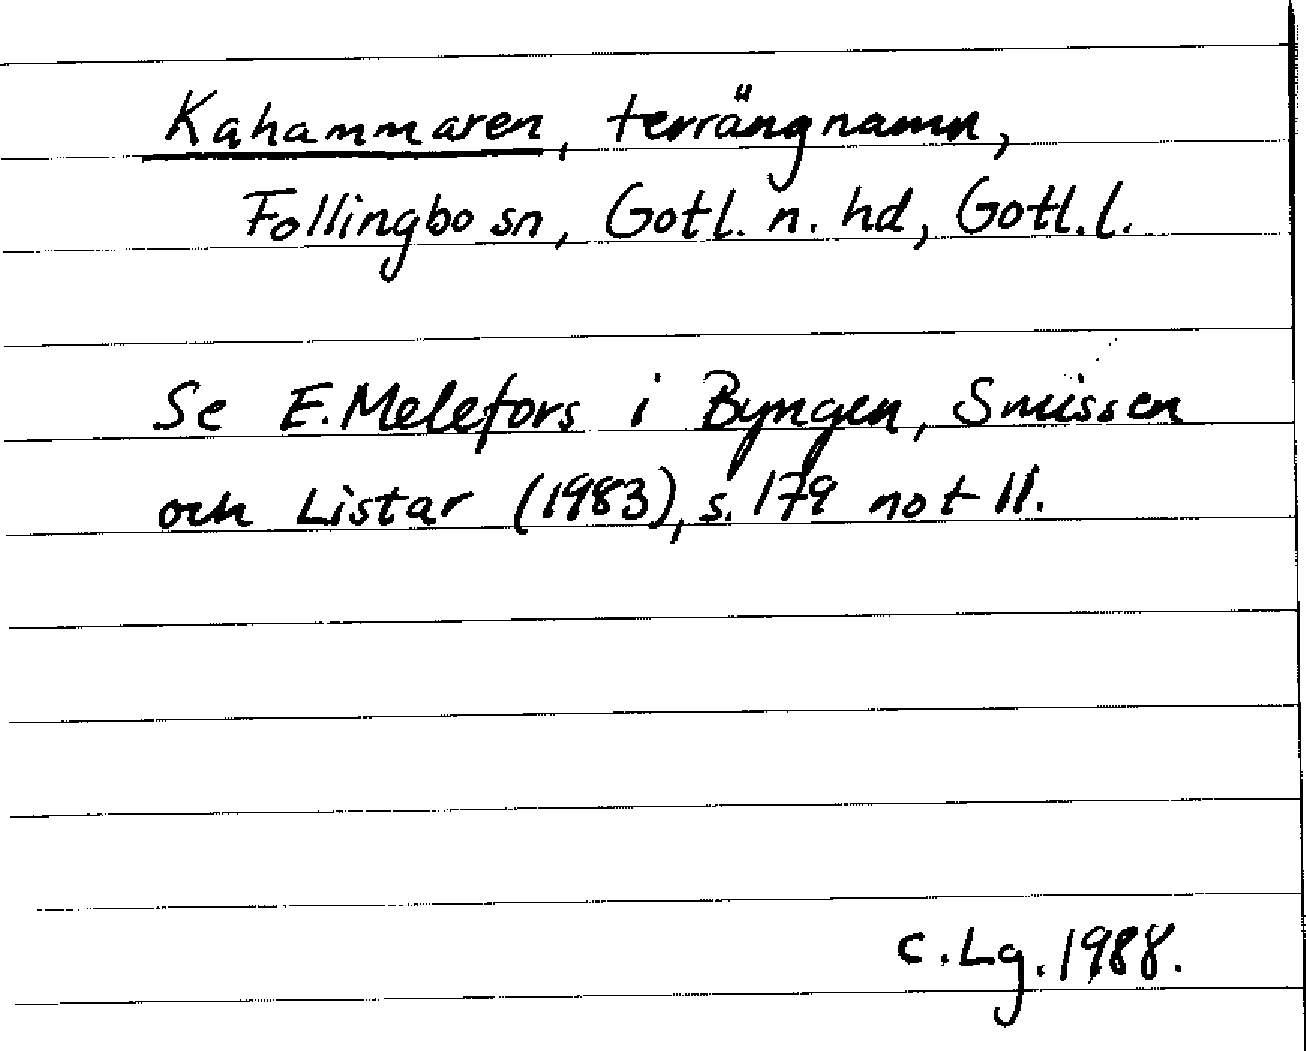 Kahammaren, terrängnamn,
Follingbo sn, Gotl. n. hd, Gotl. l.
Se E. Melefors i Byngen, Smissen
och Listar (1983), s. 179 not 11.
C. Lg. 1988.